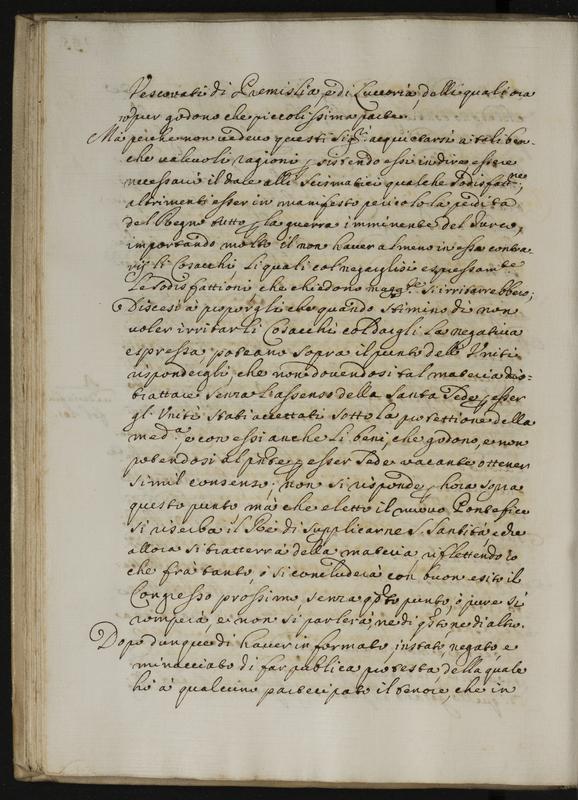 Vescovati di Premislia, e di Luccoria, delli quali ora
non godono che piccolissima parte.
Mà perche non vedevo questi Sig.ri acquietarsi a tali ben-
che valevoli ragioni, persistendo essi in dire essere
necessario il dare alli Scismatici qualche sodisfatt.ne,
altrimenti esser in manifesto pericolo la perdita
del Regno tutto per la guerra imminente del Turco,
importando molto il non haver almeno in essa contra-
rij li Cosacchi, li quali col negarglisi espressam.te
le sodisfattioni che chiedono magg.te si irritarebbero;
Discesi à proporgli che quando stimino di non
voler irritar li Cosacchi col dargli la negativa
espressa, poteano sopra il punto delli Uniti
rispondergli, che non dovendosi tal materia
trattare senza l'assenso della Santa Sede per esser
gl'Uniti stati accettati sotto la protettione della
med.a e con essi anche li beni, che godono, e non
potendosi al pnte per esser Sede vacante ottener
simil consenso; non si risponde per hora sopra
questo punto mà che eletto il nuovo Pontefice
si riserba il Rè di supplicarne S. Santità, e che
allora si tratterrà della materia riflettendo io
che frà tanto, ò si concluderà con buon esito il
Congresso prossimo, senza q̃sto punto, ò pure si
romperà, e non si parlerà nè di q̃sto nè di altro.
Dopo dunque di haver informato, instato, negato e
minacciato di far publica protesta della quale
hò à qualcuno participato il tenore, che in